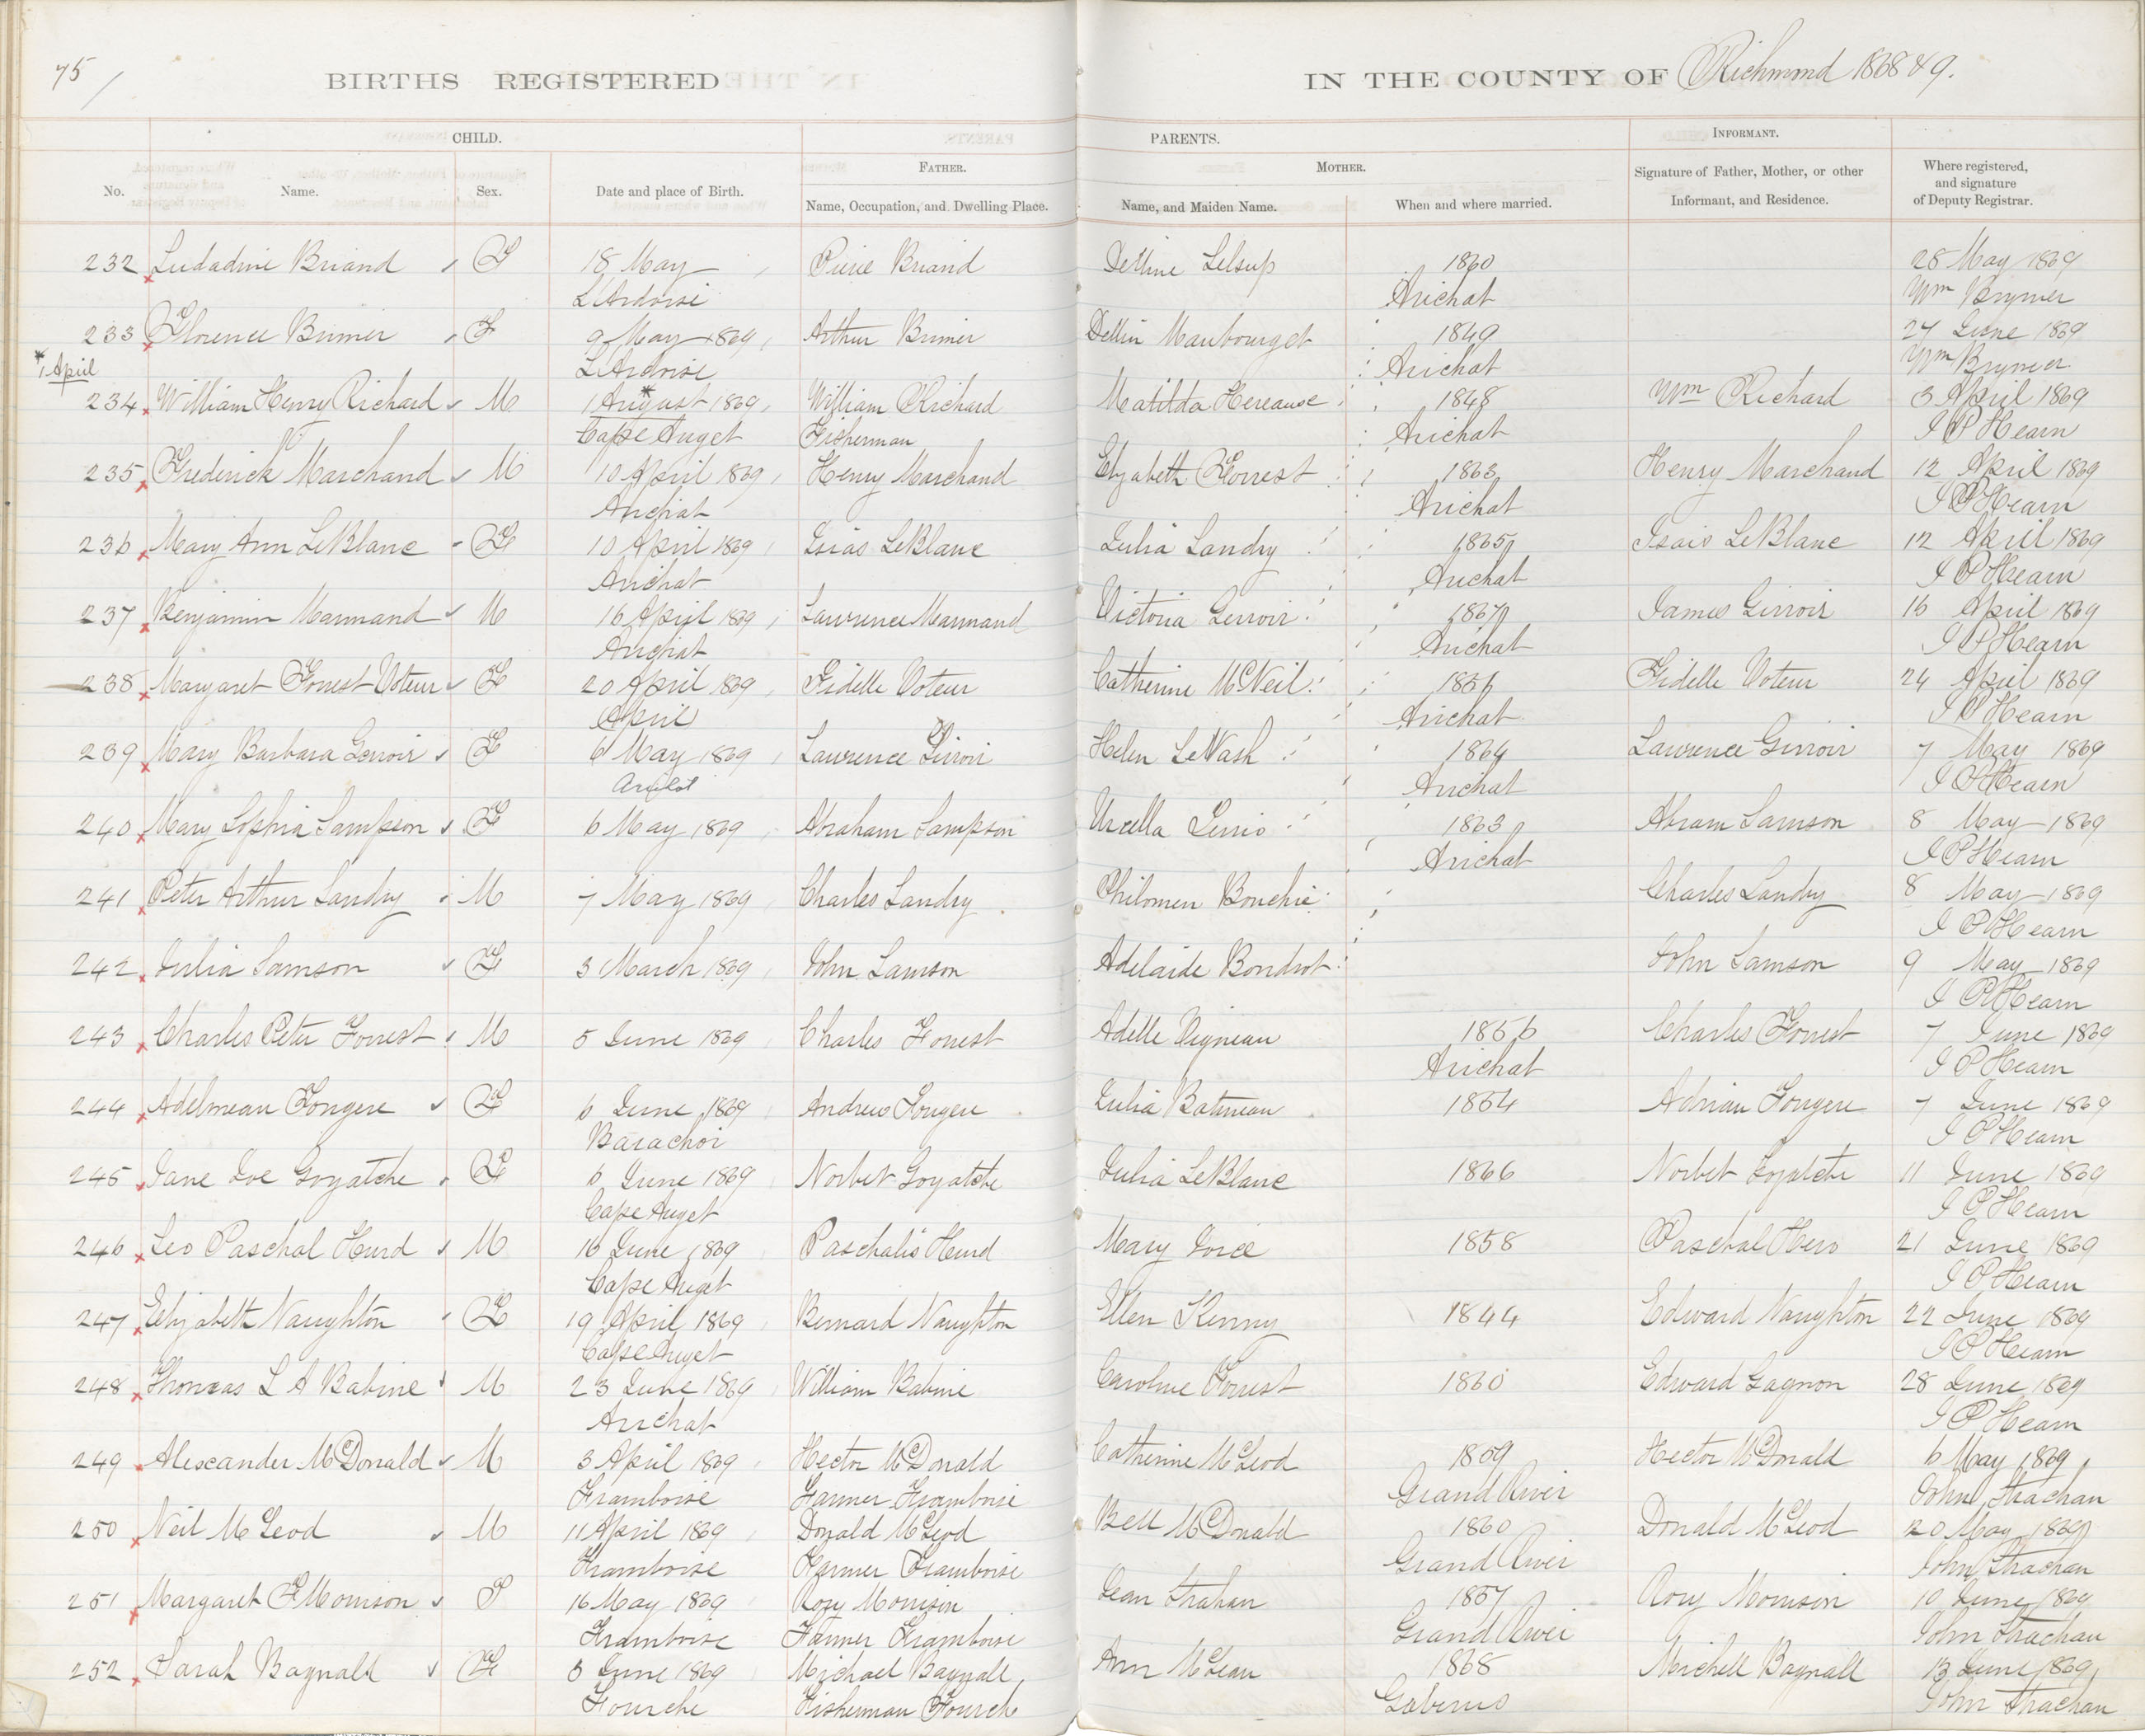 75
BIRTHS REGISTERED IN THE COUNTY OF Richmond 1868 & 9.
CHILD. PARENTS. INFORMANT.
No. Name. Sex. Date and place of Birth. FATHER. Name, Occupation, and Dwelling Place. MOTHER. Name, and Maiden Name. When and where married. Signature of Father, Mother, or other Informant, and Residence. Where registered, and signature of Deputy Registrar.
232 Briand F 18 May Briand 1860 28 May 1869
L'Ardoise Arichat Wm Brymer
233 Florence Brimer F 9 May 1869 Arthur Brimer Maubourget 1849 27 June 1869
L'Ardoise Arichat Wm Brymer
* 1 April
234 William Henry Richard M 1 August* 1869 William Richard Matilda 1848 Wm Richard 3 April 1869
Cape Auget Fisherman Arichat I P Hearn
235 Frederick Marchand M 10 April 1869 Henry Marchand Elizabeth Forrest 1863 Henry Marchand 12 April 1869
Arichat Arichat I P Hearn
236 Mary Ann LeBlanc F 10 April 1869 Isias LeBlanc Julia Landry 1865 LeBlanc 12 April 1869
Arichat Arichat I P Hearn
237 Benjamin Marmand M 16 April 1869 Lawrence Marmand Victoria Gerroir 1867 James Girroir 16 April 1869
Arichat Arichat I P Hearn
238 Margaret Forrest Voteur F 20 April 1869 Fidelle Voteur Catherine McNeil 1856 Fidelle Voteur 24 April 1869
April Arichat I P Hearn
239 Mary Barbara Gerroir F 6 May 1869 Lawrence Girroir Helen LeVash 1864 Lawrence Girroir 7 May 1869
Arichat Arichat I P Hearn
240 Mary Sophia Sampson F 6 May 1869 Abraham Sampson 1863 Abram Samson 8 May 1869
Arichat I P Hearn
241 Peter Arthur Landry M 7 May 1869 Charles Landry Philomen Bouchie Charles Landry 8 May 1869
I P Hearn
242 Julia Samson F 3 March 1869 John Samson Adelaide Bondrot John Samson 9 May 1869
I P Hearn
243 Charles Peter Forrest M 5 June 1869 Charles Forrest Adelle Vigneau 1856 Charles Forrest 7 June 1869
Arichat I P Hearn
244 Adelmean Fougere F 6 June 1869 Andrew Fougere Julia 1864 Adrian Fougere 7 June 1869
Barachoi I P Hearn
245 Jane Zoe Goyatche F 6 June 1869 Norbet Goyatche Julia LeBlanc 1866 Norbet Goyatche 11 June 1869
Cape Auget I P Hearn
246 Leo Paschal Hurd M 16 June 1869 Paschalis Hurd Mary Joice 1858 Paschal 21 June 1869
Cape Auget I P Hearn
247 Elizabeth Naughton F 19 April 1869 Bernard Naughton Ellen Kenny 1844 Edward Naughton 22 June 1869
Cape Auget I P Hearn
248 Thomas L A Babine M 23 June 1869 William Babine Caroline Forrest 1860 Edward Gagnon 28 June 1869
Arichat I P Hearn
249 Alexcander McDonald M 3 April 1869 Hector McDonald Catherine McLeod 1859 Hector McDonald 6 May 1869
Framboise Farmer Framboise Grand River John Strachan
250 Neil McLeod M 11 April 1869 Donald McLeod Bell McDonald 1860 Donald McLeod 20 May 1869
Framboise Farmer Framboise Grand River John Strachan
251 Margaret F Morrison F 16 May 1869 Rory Morrison Jean Strahan 1857 Rory Morrison 10 June 1869
Framboise Farmer Framboise Grand River John Strachan
252 Sarah Bagnall F 5 June 1869 Michael Bagnall Ann McLean 1868 Michell Bagnall 13 June 1869
Fourche Fisherman Fourch Gabarus John Strachan